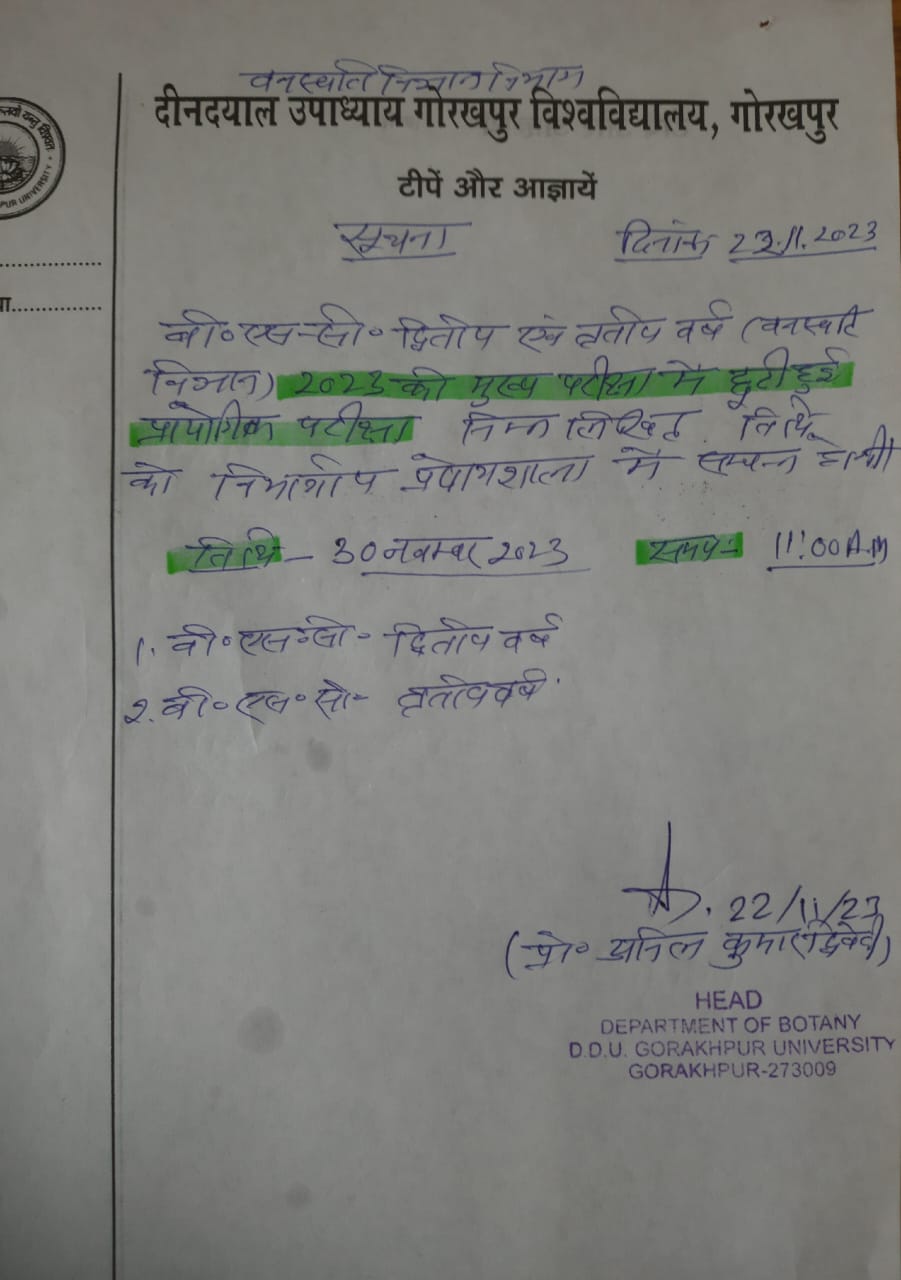 वनस्पति विज्ञान विभाग
दीनदयाल उपाध्याय गोरखपुर विश्वविद्यालय, गोरखपुर
टीपें और आज्ञायें
सूचना दिनांक 23.11.2023
बी०एस-सी० द्वितीय एवं तृतीय वर्ष (वनस्पति
विज्ञान) 2023 की मुख्य परीक्षा में छूटी हुई
प्रायोगिक परीक्षा निम्न लिखित तिथि
को विभागीय प्रयोगशाला में सम्पन्न होगी
तिथि - 30 नवम्बर 2023 समय:- 11:00 A.M
1. बी०एस०सी० द्वितीय वर्ष
2. बी०एस०सी० तृतीय वर्ष
22/11/23
(प्रो० अनिल कुमार द्विवेदी)
HEAD
DEPARTMENT OF BOTANY
D.D.U. GORAKHPUR UNIVERSITY
GORAKHPUR-273009